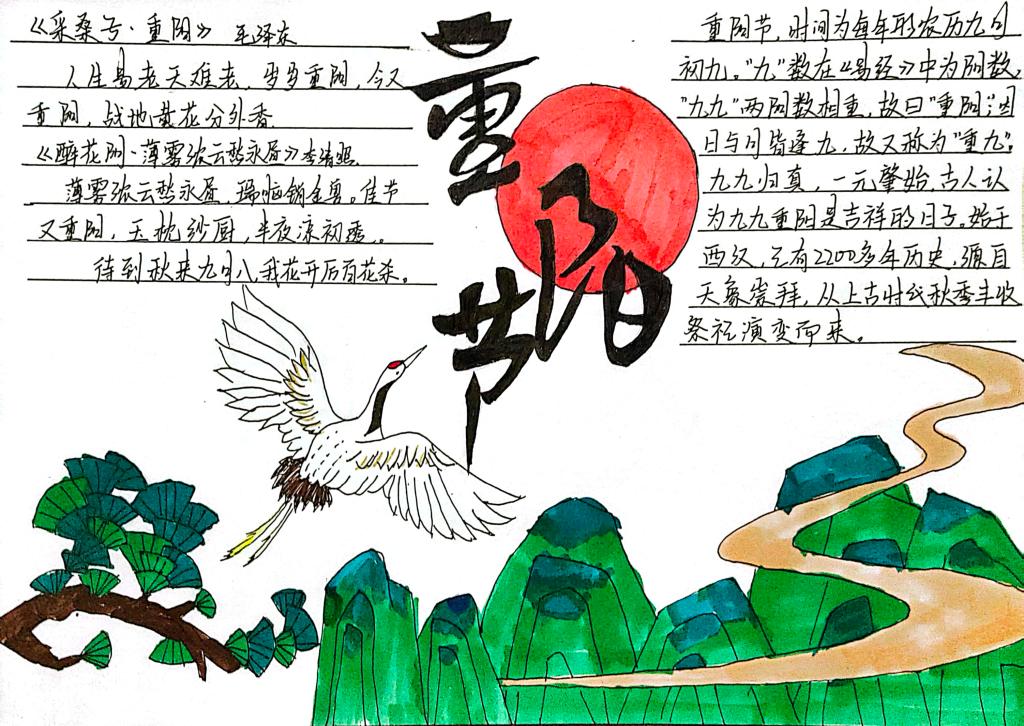 《采桑子·重阳》 毛泽东
人生易老天难老，岁岁重阳，今又
重阳，战地黄花分外香
《醉花阴·薄雾浓云愁永昼》李清照
薄雾浓云愁永昼，瑞脑销金兽。佳节
又重阳，玉枕纱厨，半夜凉初透。
待到秋来九月八，我花开后百花杀。
重阳节
重阳节，时间为每年的农历九旬
初九。"九"数在《易经》中为阳数，
"九九"两阳数相重，故曰"重阳"；因
日与月皆逢九，故又称为"重九"。
九九归真，一元肇始，古人认
为九九重阳是吉祥的日子。始于
西汉，已有2200多年历史，源自
天象崇拜，从上古时代秋季丰收
祭祀演变而来。